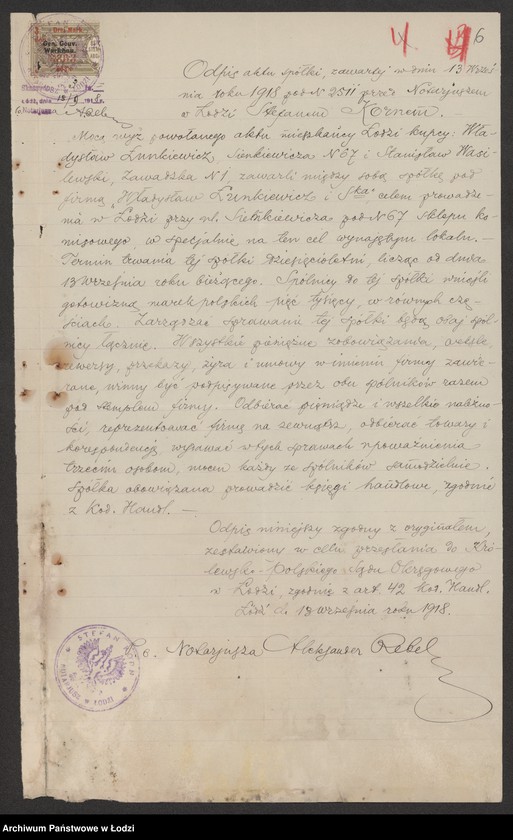 4 4 6
Eine Mark
Gen. Gouv.
Warschau.
Odpis aktu spółki, zawartej w dniu 13 Wrześ
nia roku 1918 pod № 2511 przed Notarjuszem
w Łodzi Stefanem Kornem.
Mocą wyż powołanego aktu mieszkańcy Łodzi kupcy: Wła-
dysław Lunkiewicz, Sienkiewicza № 67 i Stanisław Wasi-
lewski, Zawadzka № 1, zawarli między sobą spółkę pod
firmą "Władysław Lunkiewicz i Ska" celem prowadze-
nia w Łodzi przy ul. Sienkiewicza pod № 67 sklepu ko-
misowego, w specjalnie na ten cel wynajętym lokalu. —
Termin trwania tej spółki dziesięcioletni, licząc od dnia
13 Września roku bieżącego. Spólnicy do tej spółki wnieśli
gotowizną marek polskich pięć tysięcy, w równych czę-
ściach. Zarządzać sprawami tej spółki będą obaj spól-
nicy łącznie. Wszystkie pieniężne zobowiązania, weksle,
rewersy, przekazy, żyra i umowy w imieniu firmy zawie-
rane, winny być podpisywane przez obu spólników razem
pod stemplem firmy. Odbierać pieniądze i wszelkie należno-
ści, reprezentować firmę na zewnątrz, odbierać towary i
korespondencję, wydawać w tych sprawach upoważnienia
trzecim osobom, mocen każdy ze spólników samodzielnie.
Spółka obowiązana prowadzić księgi handlowe, zgodnie
z Kod. Handl. —
Odpis niniejszy zgodny z oryginałem,
zestawiony w celu przesłania do Kró-
lewsko-Polskiego Sądu Okręgowego
w Łodzi, zgodnie z art. 42 Kod. Handl.
Łódź d. 18 września roku 1918.
Notarjusza Aleksander Rebel
STEFAN KORN
NOTARJUSZ w ŁODZI
Archiwum Państwowe w Łodzi